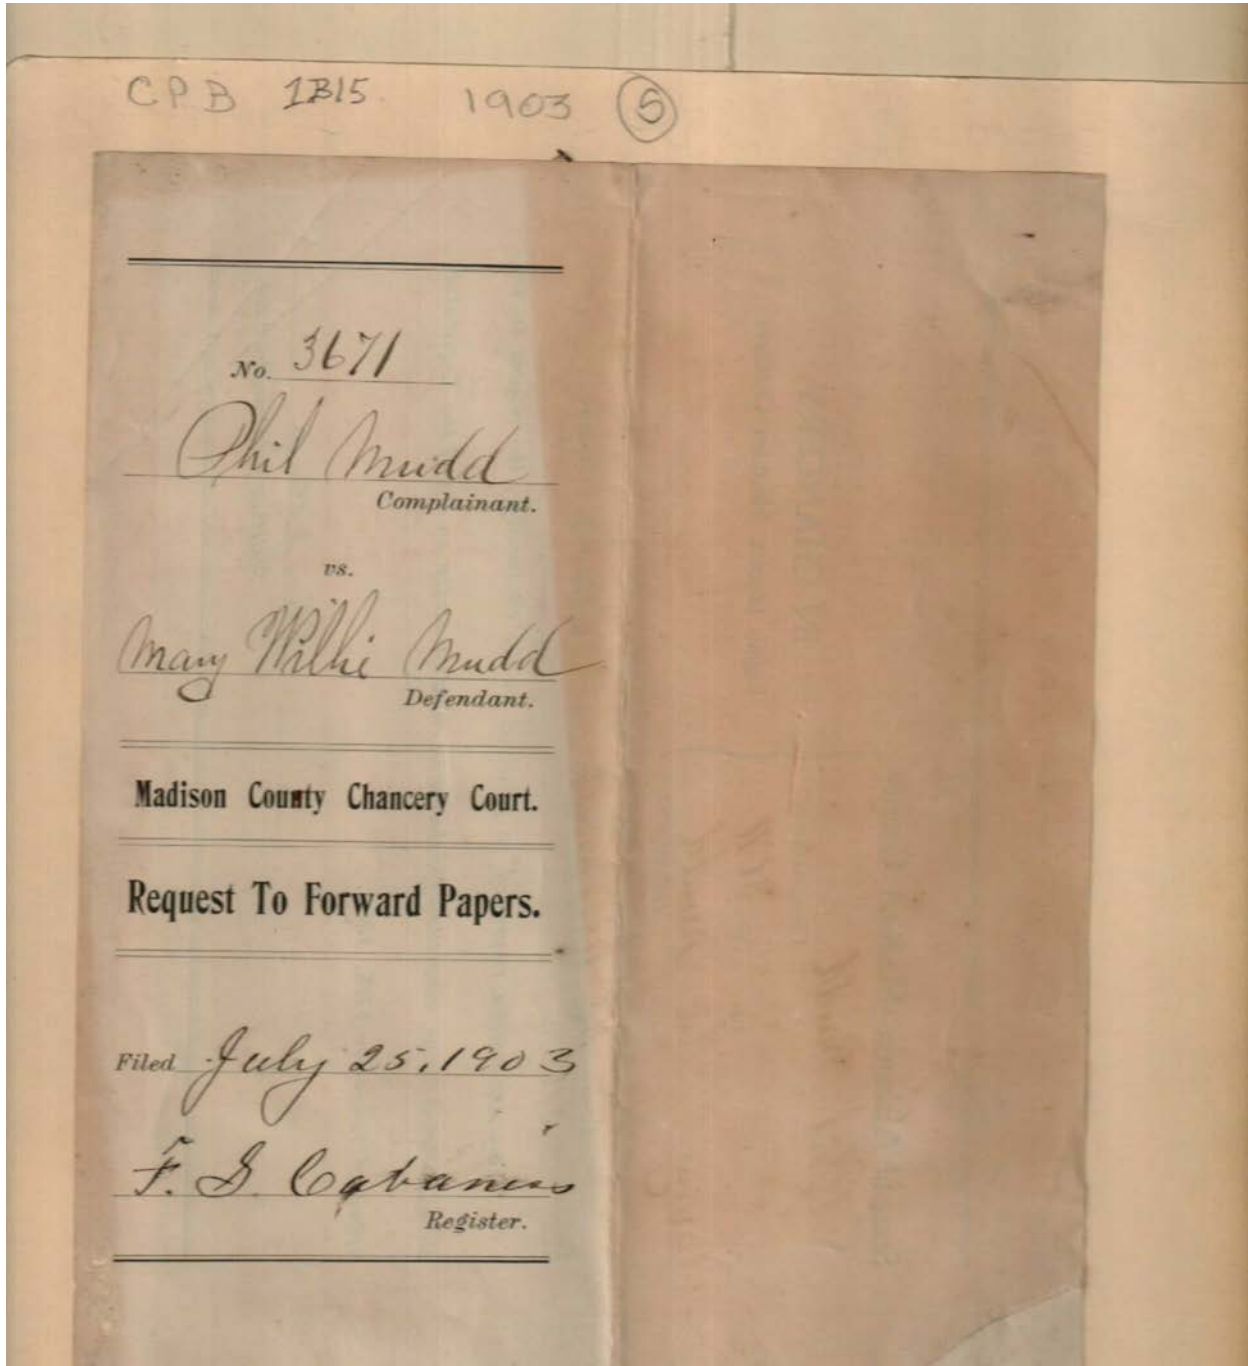 CPB 1B15 1903 5
No. 3671
Phil Mudd
Complainant.
vs.
Mary Willie Mudd
Defendant.
Madison County Chancery Court.
Request To Forward Papers.
Filed July 25, 1903
F. S. Cabaniss
Register.